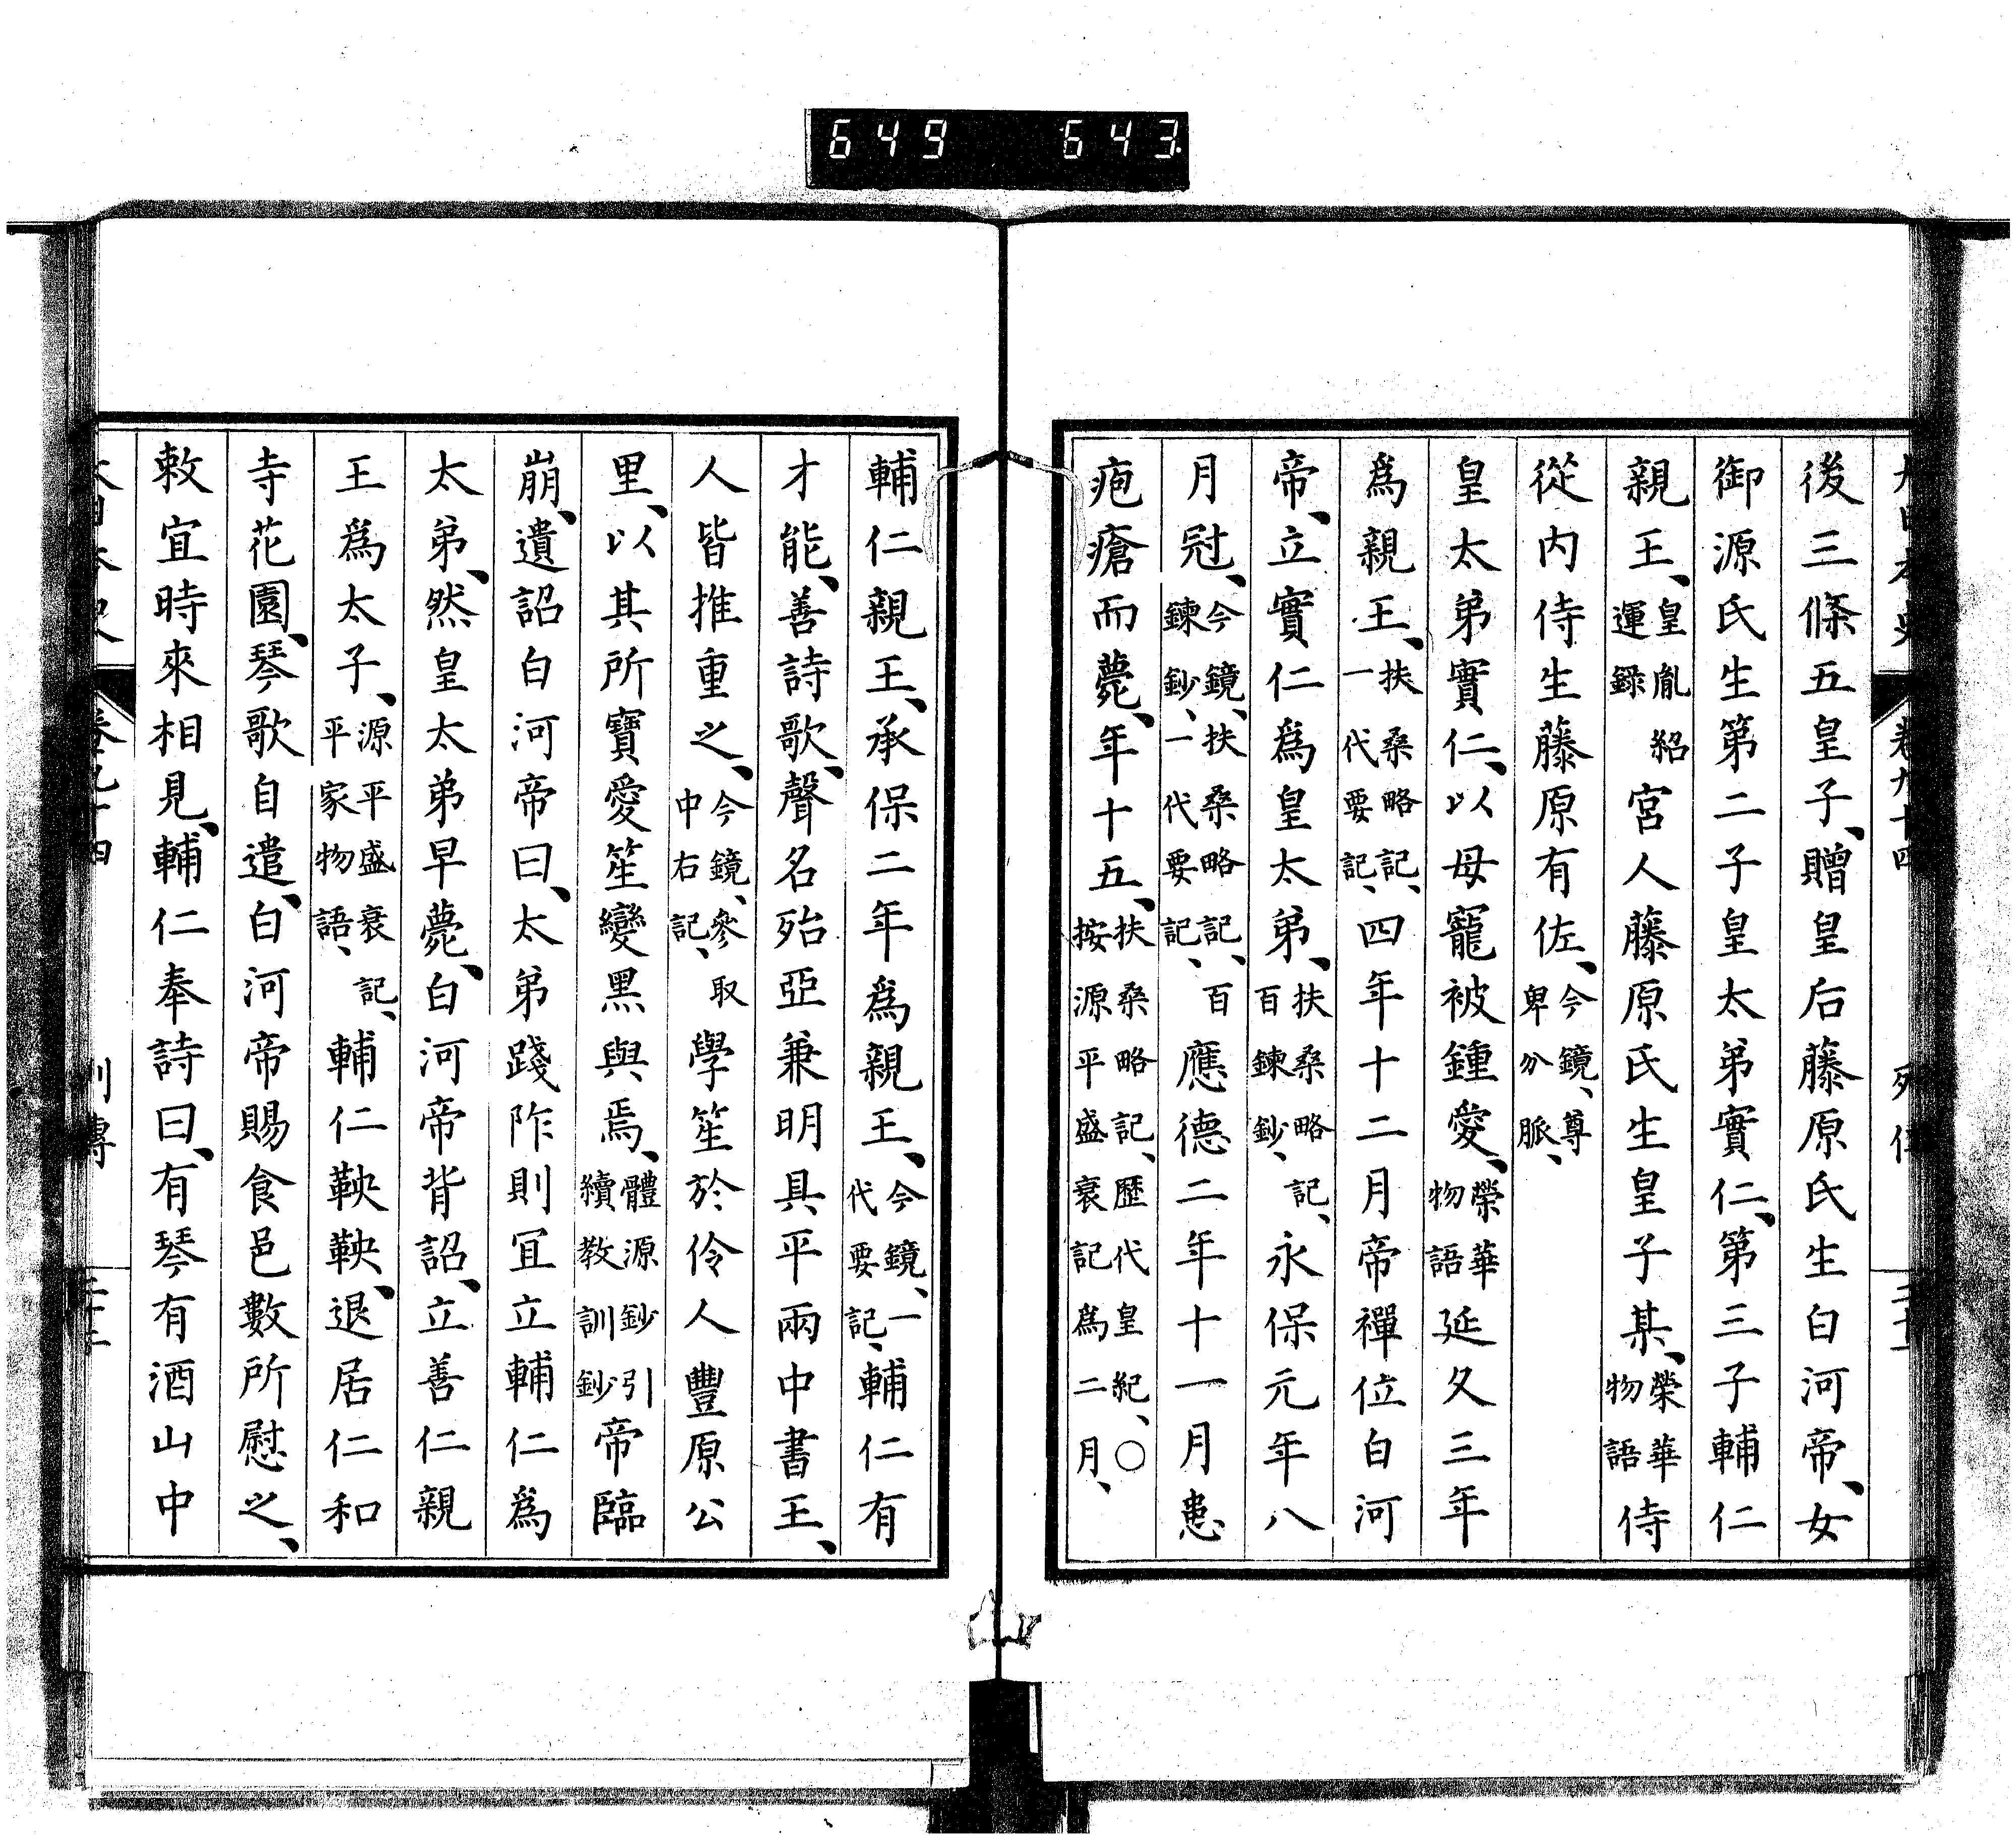 649 643
大日本史 卷九十四 列傳
後三條五皇子、贈皇后藤原氏生白河帝、女
御源氏生第二子皇太弟實仁、第三子輔仁
親王、皇胤紹運録宮人藤原氏生皇子某、榮華物語侍
從内侍生藤原有佐、今鏡、尊卑分脈、
皇太弟實仁、以母寵被鍾愛、榮華物語延久三年
爲親王、扶桑略記、一代要記、四年十二月帝禪位白河
帝、立實仁爲皇太弟、扶桑略記、百鍊鈔、永保元年八
月冠、今鏡、扶桑略記、百鍊鈔、一代要記、應德二年十一月患
疱瘡而薨、年十五、扶桑略記、歷代皇紀、○按源平盛衰記爲二月、
輔仁親王、承保二年爲親王、今鏡、一代要記、輔仁有
才能、善詩歌、聲名殆亞兼明具平兩中書王、
人皆推重之、今鏡、參取中右記、學笙於伶人豐原公
里、以其所寶愛笙變黑與焉、體源鈔引續教訓鈔帝臨
崩、遺詔白河帝曰、太弟踐阼則宜立輔仁爲
太弟、然皇太弟早薨、白河帝背詔、立善仁親
王爲太子、源平盛衰記、平家物語、輔仁鞅鞅、退居仁和
寺花園、琴歌自遣、白河帝賜食邑數所慰之、
敕宜時來相見、輔仁奉詩曰、有琴有酒山中
大日本史 卷九十四 列傳